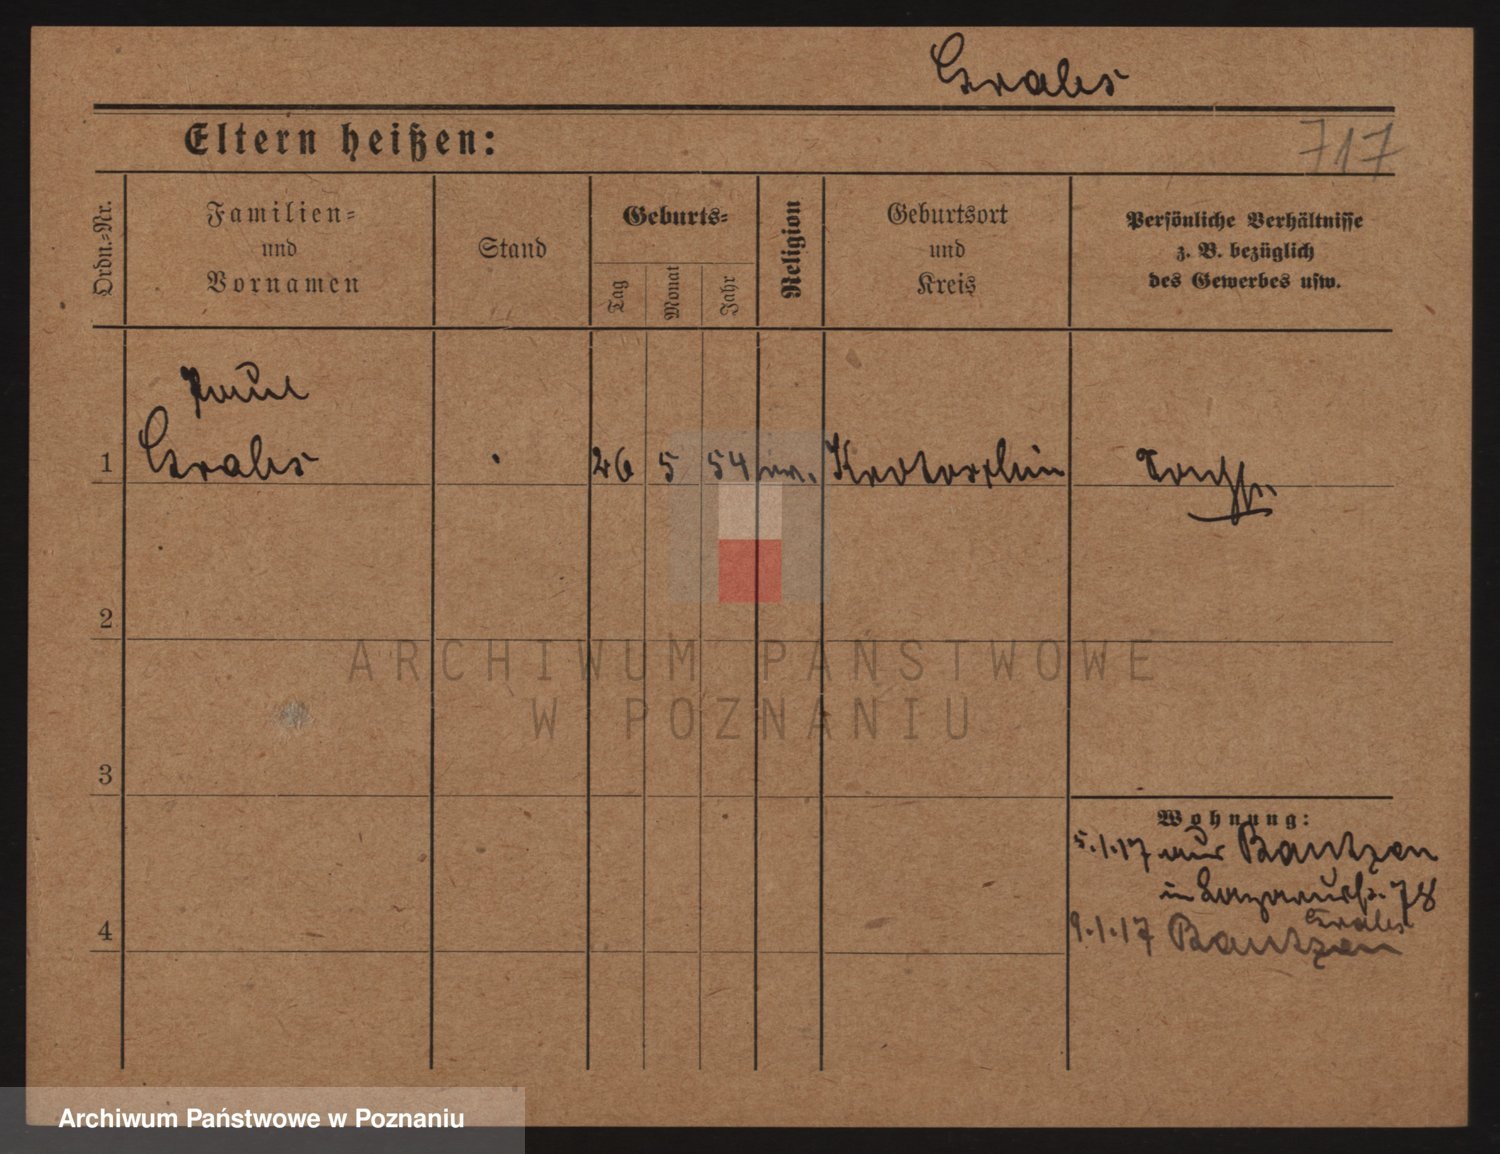 Grabs
Eltern heißen:
717
Ordn.-Nr.
Familien-
und
Vornamen
Stand
Geburts-
Tag
Monat
Jahr
Religion
Geburtsort
und
Kreis
Persönliche Verhältnisse
z. B. bezüglich
des Gewerbes usw.
Paul
1 Grabs 26 5 54 ev. Krotoschin
2
3
4
Wohnung:
5.1.17 aus Bautzen
in Lazarusstr. 78
Grabs
9.1.17 Bautzen
ARCHIWUM PAŃSTWOWE
W POZNANIU
Archiwum Państwowe w Poznaniu